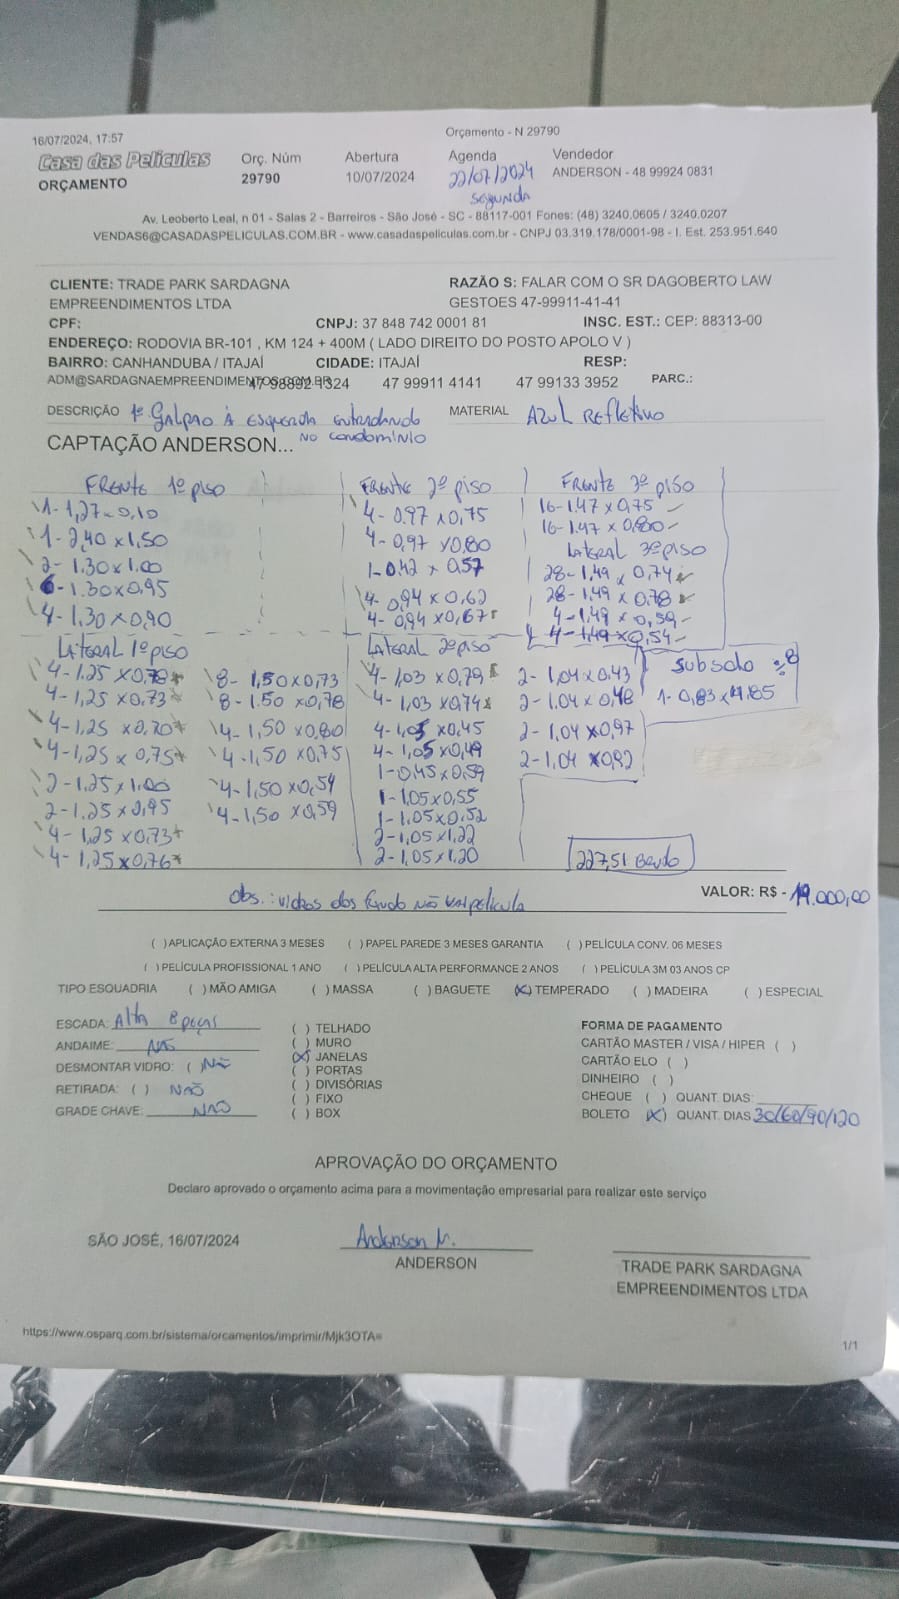 16/07/2024, 17:57
Orçamento - N 29790
Casa das Películas
ORÇAMENTO
Orç. Núm
29790
Abertura
10/07/2024
Agenda
22/07/2024
Segunda
Vendedor
ANDERSON - 48 99924 0831
Av. Leoberto Leal, n 01 - Salas 2 - Barreiros - São José - SC - 88117-001 Fones: (48) 3240.0605 / 3240.0207
VENDAS6@CASADASPELICULAS.COM.BR - www.casadaspeliculas.com.br - CNPJ 03.319.178/0001-98 - I. Est. 253.951.640
CLIENTE: TRADE PARK SARDAGNA
EMPREENDIMENTOS LTDA
RAZÃO S: FALAR COM O SR DAGOBERTO LAW
GESTOES 47-99911-41-41
CPF:
CNPJ: 37 848 742 0001 81
INSC. EST.: CEP: 88313-00
ENDEREÇO: RODOVIA BR-101 , KM 124 + 400M ( LADO DIREITO DO POSTO APOLO V )
BAIRRO: CANHANDUBA / ITAJAÍ
CIDADE: ITAJAÍ
RESP:
ADM@SARDAGNAEMPREENDIMENTOS.COM.BR
47 99911 4141
47 99133 3952
PARC.:
DESCRIÇÃO 1º Galpão à esquerda entrando
no condomínio
MATERIAL Azul Refletivo
CAPTAÇÃO ANDERSON...
Frente 1º piso
1-2,40 x 1,50
2-1.30 x 1.00
6-1.30 x 0,95
4-1,30 x 0,90
Lateral 1º piso
4-1.25 x 0,78
4-1,25 x 0,73
4-1,25 x 0,70
4-1,25 x 0,75
2-1.25 x 1.00
2-1,25 x 0,95
4-1,25 x 0,73
4-1,25 x 0,76
8-1,50 x 0,73
8-1.50 x 0,78
4-1,50 x 0,80
4-1,50 x 0,75
4-1,50 x 0,54
4-1,50 x 0,59
Frente 2º piso
4-0.97 x 0,75
4-0,97 x 0,80
1-0.42 x 0,57
4-0,94 x 0,62
4-0,94 x 0,67
Lateral 2º piso
4-1,03 x 0,79
4-1,03 x 0,74
4-1,05 x 0,45
4-1,05 x 0,49
1-0,45 x 0,59
1-1,05 x 0,55
1-1,05 x 0,52
2-1,05 x 1,22
2-1,05 x 1,20
2-1,04 x 0,43
2-1,04 x 0,48
2-1,04 x 0,97
2-1,04 x 0,92
Frente 3º piso
16-1.47 x 0,75
16-1.47 x 0,80
Lateral 3º piso
28-1,49 x 0,74
28-1,49 x 0,78
4-1,49 x 0,59
4-1,49 x 0,54
Subsolo
1-0,83 x 4.85
227,51
obs.: vidros dos fundo não vai película
VALOR: R$ - 19.000,00
( ) APLICAÇÃO EXTERNA 3 MESES ( ) PAPEL PAREDE 3 MESES GARANTIA ( ) PELÍCULA CONV. 06 MESES
( ) PELÍCULA PROFISSIONAL 1 ANO ( ) PELÍCULA ALTA PERFORMANCE 2 ANOS ( ) PELÍCULA 3M 03 ANOS CP
TIPO ESQUADRIA ( ) MÃO AMIGA ( ) MASSA ( ) BAGUETE (x) TEMPERADO ( ) MADEIRA ( ) ESPECIAL
ESCADA: Alta 8 peças
ANDAIME: NÃO
DESMONTAR VIDRO: ( ) NÃO
RETIRADA: ( ) NÃO
GRADE CHAVE: NÃO
( ) TELHADO
( ) MURO
(x) JANELAS
( ) PORTAS
( ) DIVISÓRIAS
( ) FIXO
( ) BOX
FORMA DE PAGAMENTO
CARTÃO MASTER / VISA / HIPER ( )
CARTÃO ELO ( )
DINHEIRO ( )
CHEQUE ( ) QUANT. DIAS:
BOLETO (x) QUANT. DIAS 30/60/90/120
APROVAÇÃO DO ORÇAMENTO
Declaro aprovado o orçamento acima para a movimentação empresarial para realizar este serviço
SÃO JOSÉ, 16/07/2024
Anderson M.
ANDERSON
TRADE PARK SARDAGNA
EMPREENDIMENTOS LTDA
https://www.osparq.com.br/sistema/orcamentos/imprimir/Mjk3OTA=
1/1